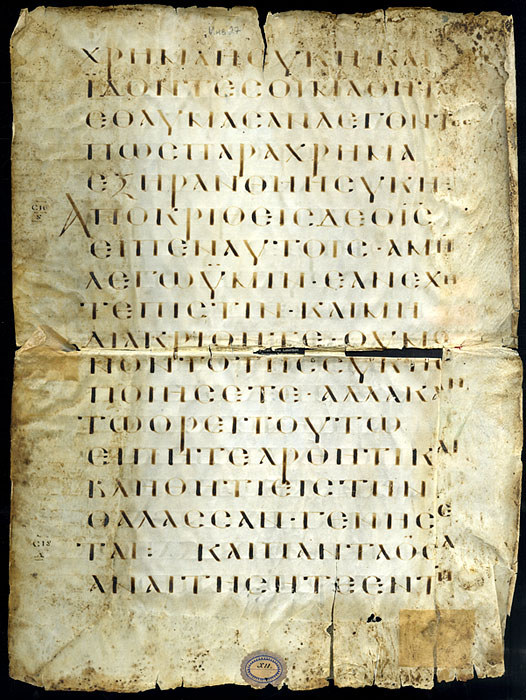 ΧΡΗΜΑΗϹΥΚΗ·ΚΑΙ
ΪΔΟΝΤΕϹΟΙΜΑΘΗΤΑΙ
ΕΘΑΥΜΑϹΑΝΛΕΓΟΝΤΕϹ
ΠΩϹΠΑΡΑΧΡΗΜΑ
ΕΞΗΡΑΝΘΗΗϹΥΚΗ·
ΑΠΟΚΡΙΘΕΙϹΔΕΟΙ̅Ϲ̅
ΕΙΠΕΝΑΥΤΟΙϹ·ΑΜΗ
ΛΕΓΩΫΜΙΝ·ΕΑΝΕΧΗ
ΤΕΠΙϹΤΙΝ·ΚΑΙΜΗ
ΔΙΑΚΡΙΘΗΤΕ·ΟΥΜΟ
ΝΟΝΤΟΤΗϹϹΥΚΗϹ
ΠΟΙΗϹΕΤΕ·ΑΛΛΑΚΑΝ
ΤΩΟΡΕΙΤΟΥΤΩ
ΕΙΠΗΤΕΑΡΘΗΤΙΚΑΙ
ΒΛΗΘΗΤΙΕΙϹΤΗΝ
ΘΑΛΑϹϹΑΝ·ΓΕΝΗϹΕ
ΤΑΙ: ΚΑΙΠΑΝΤΑΟϹΑ
ΑΝΑΙΤΗϹΗΤΕΕΝΤΗ
XII